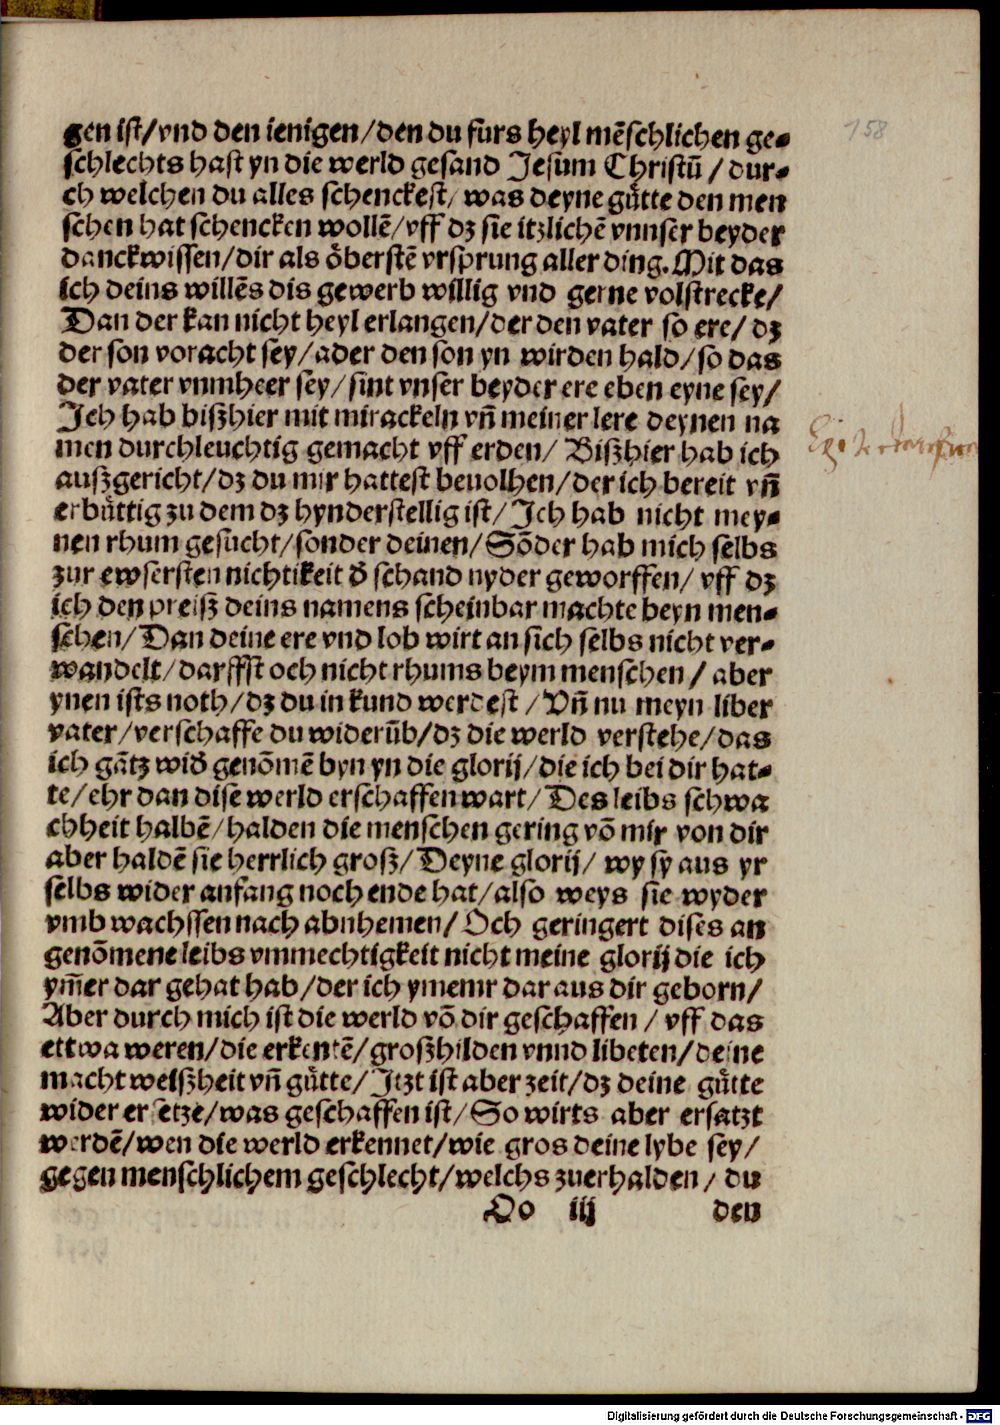 158
gen ist/vnd den ienigen/den du fürs heyl mēschlichen ge-
schlechts hast yn die werld gesand Jesum Christū/dur-
ch welchen du alles schenckest/was deyne gütte den men
schen hat schencken wollē/vff dz sie itzlichē vnnser beyder
danckwissen/dir als öberstē vrsprung aller ding.Mit das
ich deins willēs dis gewerb willig vnd gerne volstrecke/
Dan der kan nicht heyl erlangen/der den vater so ere/dz
der son voracht sey/ader den son yn wirden hald/so das
der vater vnmheer sey/sint vnser beyder ere eben eyne sey/
Jch hab bißhier mit mirackeln vñ meiner lere deynen na
men durchleuchtig gemacht vff erden/ Bißhier hab ich
außgericht/dz du mir hattest beuolhen/der ich bereit vñ
erbüttig zu dem dz hynderstellig ist/Jch hab nicht mey-
nen rhum gesucht/sonder deinen/Sōder hab mich selbs
zur ewsersten nichtikeit d̄ schand nyder geworffen/vff dz
ich den preiß deins namens scheinbar machte beyn men-
schen/Dan deine ere vnd lob wirt an sich selbs nicht ver-
wandelt/darffst och nicht rhums beym menschen/aber
ynen ists noth/dz du in kund werdest/Vñ nu meyn liber
vater/verschaffe du widerūb/dz die werld verstehe/das
ich gātz wid̄ genōmē byn yn die glorij/die ich bei dir hat-
te/ehr dan dise werld erschaffen wart/Des leibs schwa
chheit halbē/halden die menschen gering vō mir von dir
aber haldē sie herrlich groß/Deyne glorij/ wy sy aus yr
selbs wider anfang noch ende hat/also weys sie wyder
vmb wachssen nach abnhemen/Och geringert dises an
genōmene leibs vnmechtigkeit nicht meine glorij die ich
ym̄er dar gehat hab/der ich ymemr dar aus dir geborn/
Aber durch mich ist die werld vō dir geschaffen/vff das
ettwa weren/die erkentē/großhilden vnnd libeten/deine
macht weißheit vñ gütte/Jtzt ist aber zeit/dz deine gütte
wider ersetze/was geschaffen ist/So wirts aber ersatzt
werdē/wen die werld erkennet/wie gros deine lybe sey/
gegen menschlichem geschlecht/welchs zuerhalden/du
Oo iij den
Digitalisierung gefördert durch die Deutsche Forschungsgemeinschaft - DFG